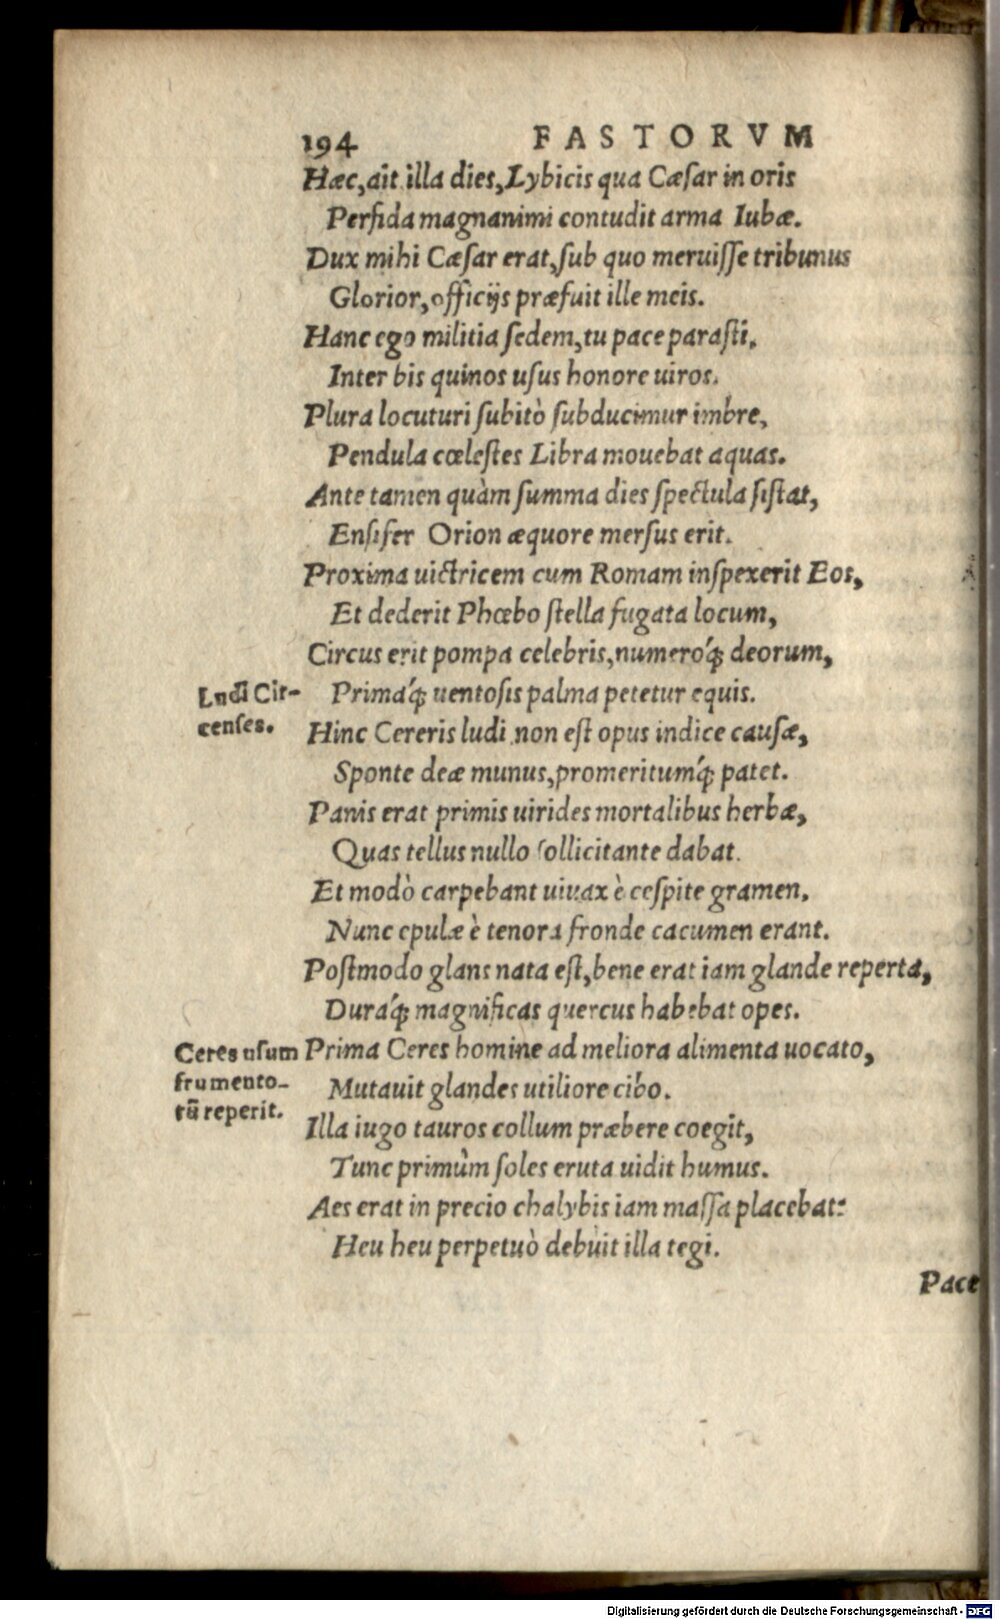 194 FASTORVM
Hæc, ait illa dies, Lybicis qua Cæſar in oris
Perfida magnanimi contudit arma Iubæ.
Dux mihi Cæſar erat, ſub quo meruiſſe tribunus
Glorior, officijs præfuit ille meis.
Hanc ego militia ſedem, tu pace paraſti,
Inter bis quinos uſus honore uiros.
Plura locuturi ſubitò ſubducimur imbre,
Pendula cœleſtes Libra mouebat aquas.
Ante tamen quàm ſumma dies ſpectula ſiſtat,
Enſifer Orion æquore merſus erit.
Proxima uictricem cum Romam inſpexerit Eos,
Et dederit Phœbo ſtella fugata locum,
Circus erit pompa celebris, numeroq́; deorum,
Ludi Cir-
cenſes.
Primaq́; uentoſis palma petetur equis.
Hinc Cereris ludi non eſt opus indice cauſæ,
Sponte deæ munus, promeritumq́; patet.
Panis erat primis uirides mortalibus herbæ,
Quas tellus nullo ſollicitante dabat.
Et modò carpebant uiuax è ceſpite gramen,
Nunc epulæ è tenera fronde cacumen erant.
Poſtmodo glans nata eſt, bene erat iam glande reperta,
Duraq́; magnificas quercus habebat opes.
Ceres uſum
frumento-
rū reperit.
Prima Ceres homine ad meliora alimenta uocato,
Mutauit glandes utiliore cibo.
Illa iugo tauros collum præbere coegit,
Tunc primùm ſoles eruta uidit humus.
Aes erat in precio chalybis iam maſſa placebat:
Heu heu perpetuò debuit illa tegi.
Pace
Digitalisierung gefördert durch die Deutsche Forschungsgemeinschaft - DFG